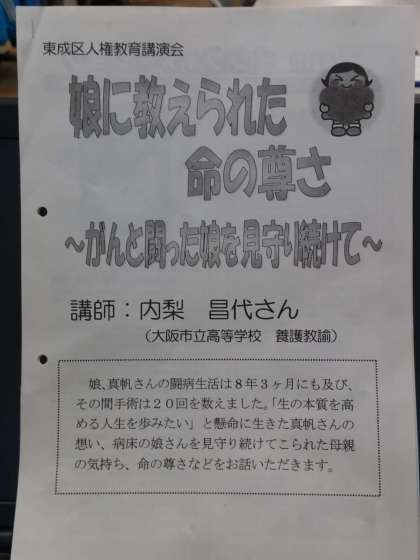 東成区人権教育講演会
娘に教えられた
命の尊さ
～がんと闘った娘を見守り続けて～
講師：内梨　昌代さん
（大阪市立高等学校　養護教諭）
娘、真帆さんの闘病生活は８年３ヶ月にも及び、
その間手術は２０回を数えました。「生の本質を高
める人生を歩みたい」と懸命に生きた真帆さんの
想い、病床の娘さんを見守り続けてこられた母親
の気持ち、命の尊さなどをお話いただきます。